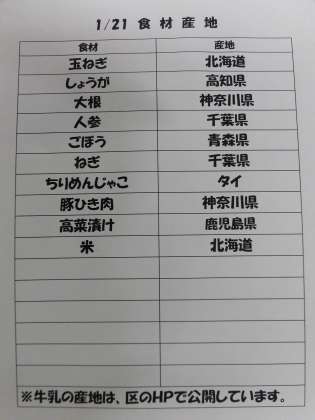 1/21 食材産地
食材 産地
玉ねぎ 北海道
しょうが 高知県
大根 神奈川県
人参 千葉県
ごぼう 青森県
ねぎ 千葉県
ちりめんじゃこ タイ
豚ひき肉 神奈川県
高菜漬け 鹿児島県
米 北海道
※牛乳の産地は、区のHPで公開しています。